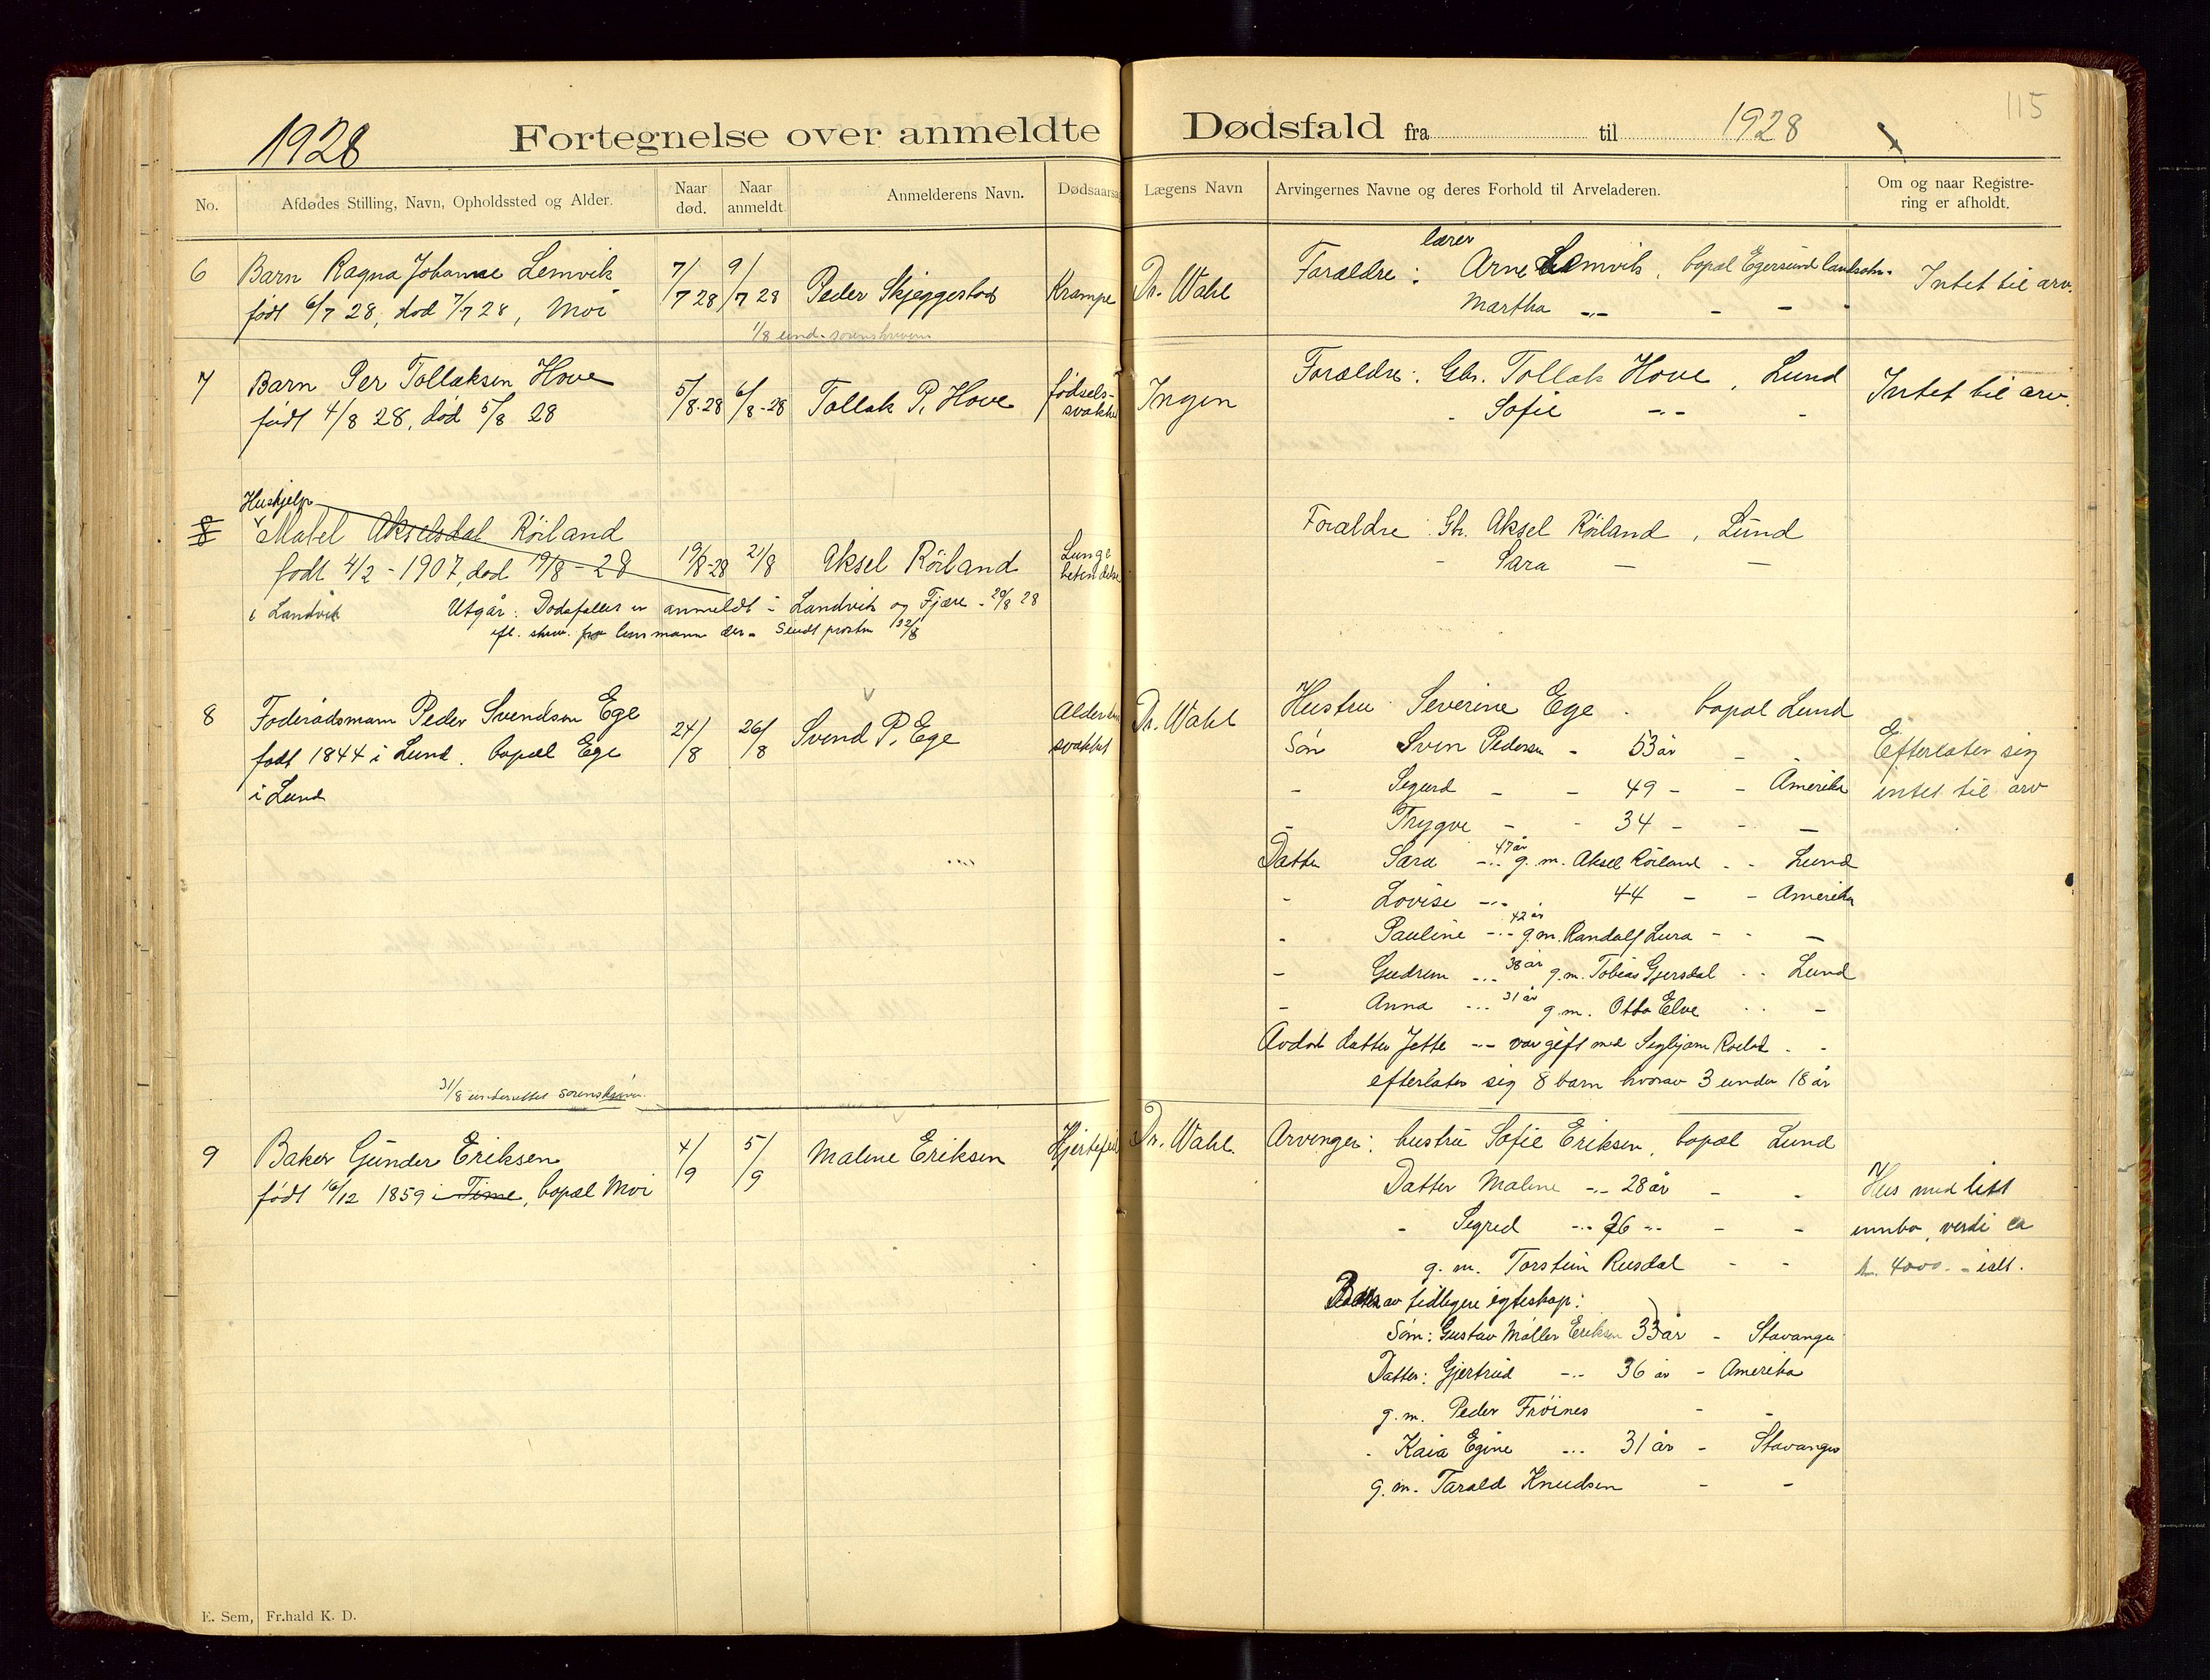 115
1928 Fortegnelse over anmeldte Dødsfald fra til 1928
No. Afdødes Stilling, Navn, Opholdssted og Alder. Naar død. Naar anmeldt Anmelderens Navn. Dødsaarsa Lægens Navn Arvingernes Navne og deres Forhold til Arveladeren. Om og naar Registre-
ring er afholdt.
6 Barn Ragna Johanne Lemvik 7/7 28 9/7 28 Peder Skjeggestad Krampe Dr. Wahl
født 6/7 28, død 7/7 28, Moi
1/8 und. sorenskriveren
lærer
Forældre: Arne Lemvik, bopæl Egersund landsokn.
Martha -"- - -
Intet til arv.
7 Barn Per Tollaksen Hove 5/8-28 6/8-28 Tollak P. Hove fødsels-
svakhet Ingen
født 4/8 28, død 5/8 28
Forældre: Gbr. Tollak Hove, Lund
- Sofie -"- -
Intet til arv.
Hushjelp
8 Mabel Akselsdal Röiland 19/8-28 21/8 Aksel Röiland Lunge
betendelse
født 4/2 - 1907, død 19/8 - 28
i Landvik
Utgår: Dødsfallet er anmeldt i Landvik og Fjære - 20/8 28
efl. skriv. fra lensmann der - Sendt prosten 22/8
Forældre: Gbr. Aksel Röiland, Lund
- Sara - -
8 Føderådsmann Peder Svendsen Ege 24/8 26/8 Svend P. Ege Alderdoms
svakhet Dr. Wahl
født 1844 i Lund. bopæl Ege
i Lund
31/8 underrettet sorenskriver.
Hustru Severine Ege - bopæl Lund
Søn Sven Pedersen - 53 år - -
- Sigurd - - 49 - - Amerika
- Trygve - - 34 - - -
Datter Sara -"- 47 år g. m. Aksel Röiland - - Lund
- Lovise -"- 44 - - Amerika
- Pauline -"- 42 år g.m. Randalf Lura - - -
- Gudrun -"- 38 år g.m. Tobias Gjersdal - - Lund
- Anna -"- 31 år g.m. Otto Elve - - -
Avdød datter Jette -"- var gift med Sigbjørn - -
efterlater sig 8 barn hvorav 3 under 18 år
Efterlater sig
intet til arv
9 Baker Gunder Eriksen 4/9 5/9 Malene Eriksen Hjertefeil Dr. Wahl.
født 16/12 1859 i Time, bopæl Moi
Arvinger: hustru Sofie Eriksen, bopæl Lund
Datter Malene -"- 28 år - -
- Sigred -"- 26 -"- - -
g. m. Torstein Rusdal - -
Barn av tidligere egteskap:
Søn: Gustav Møller Eriksen 33 år - Stavanger
Datter: Gjertrud -"- 36 år - Amerika
g. m. Peder Fröines - -
- Kaia Egine -"- 31 år - Stavanger
g. m. Tarald Knudsen - -
Hus med litt
innbo, verdi ca
kr. 4000.- ialt.
E. Sem, Fr.hald K. D.